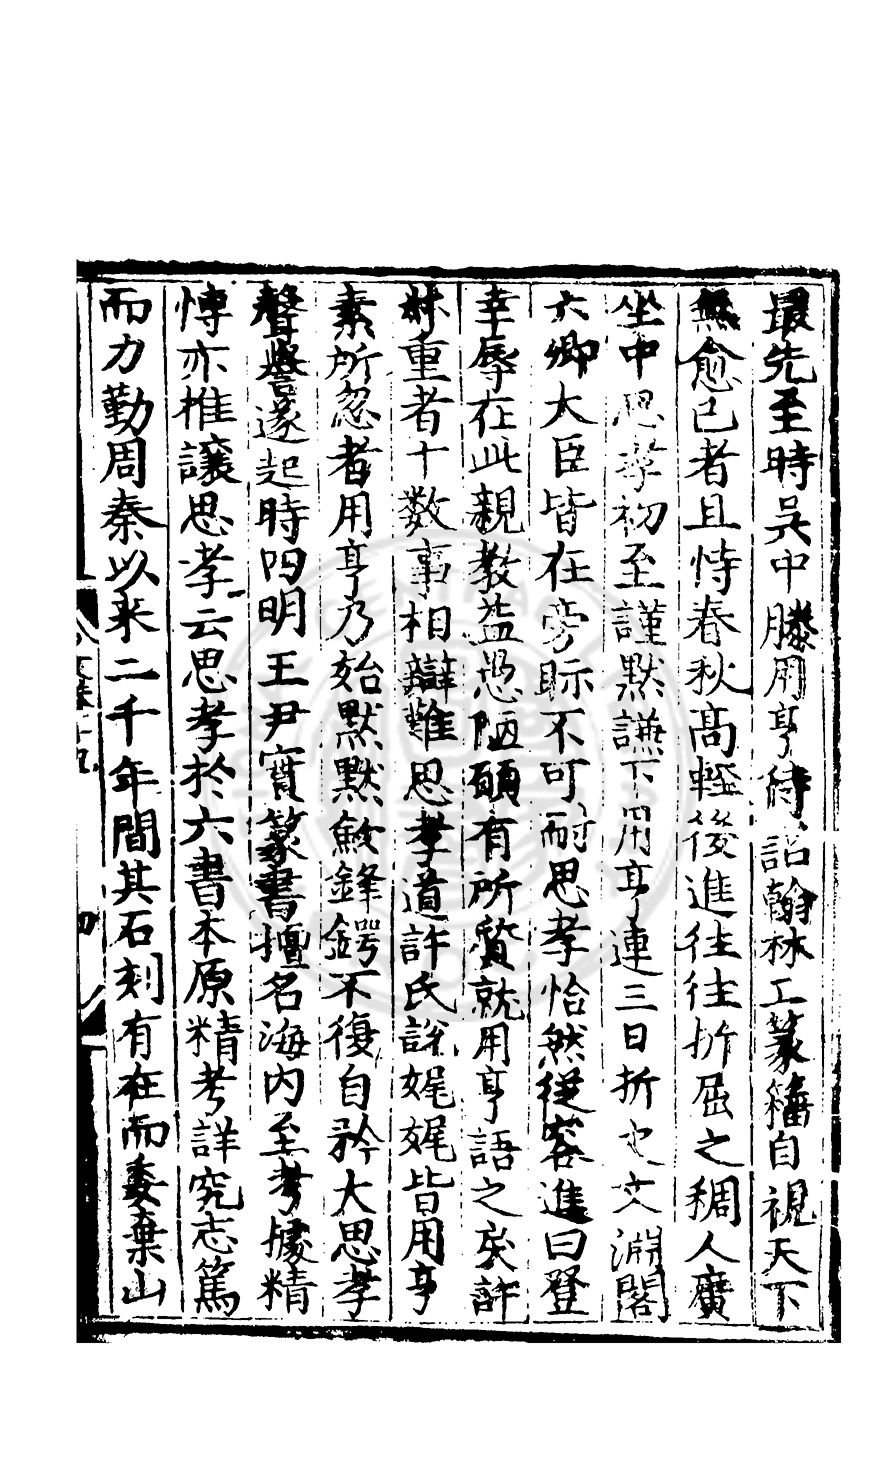 最先至時吳中滕用亨待詔翰林工篆籀自視天下
無愈己者且恃春秋高輕後進往往折屈之稠人廣
坐中思孝初至謹默謙下用亨連三日折之文淵閣
六卿大臣皆在旁眎不可耐思孝怡然從容進曰登
幸辱在此親教益愚陋願有所質就用亨語之矣許
叔重者十數事相辯難思孝道許氏說娓娓皆用亨
素所忽者用亨乃始默默斂鋒鍔不復自矜大思孝
聲譽遂起時四明王尹實篆書擅名海内至考據精
慱亦推讓思孝云思孝於六書本原精考詳究志篤
而力勤周秦以来二千年間其石刻有在而委棄山